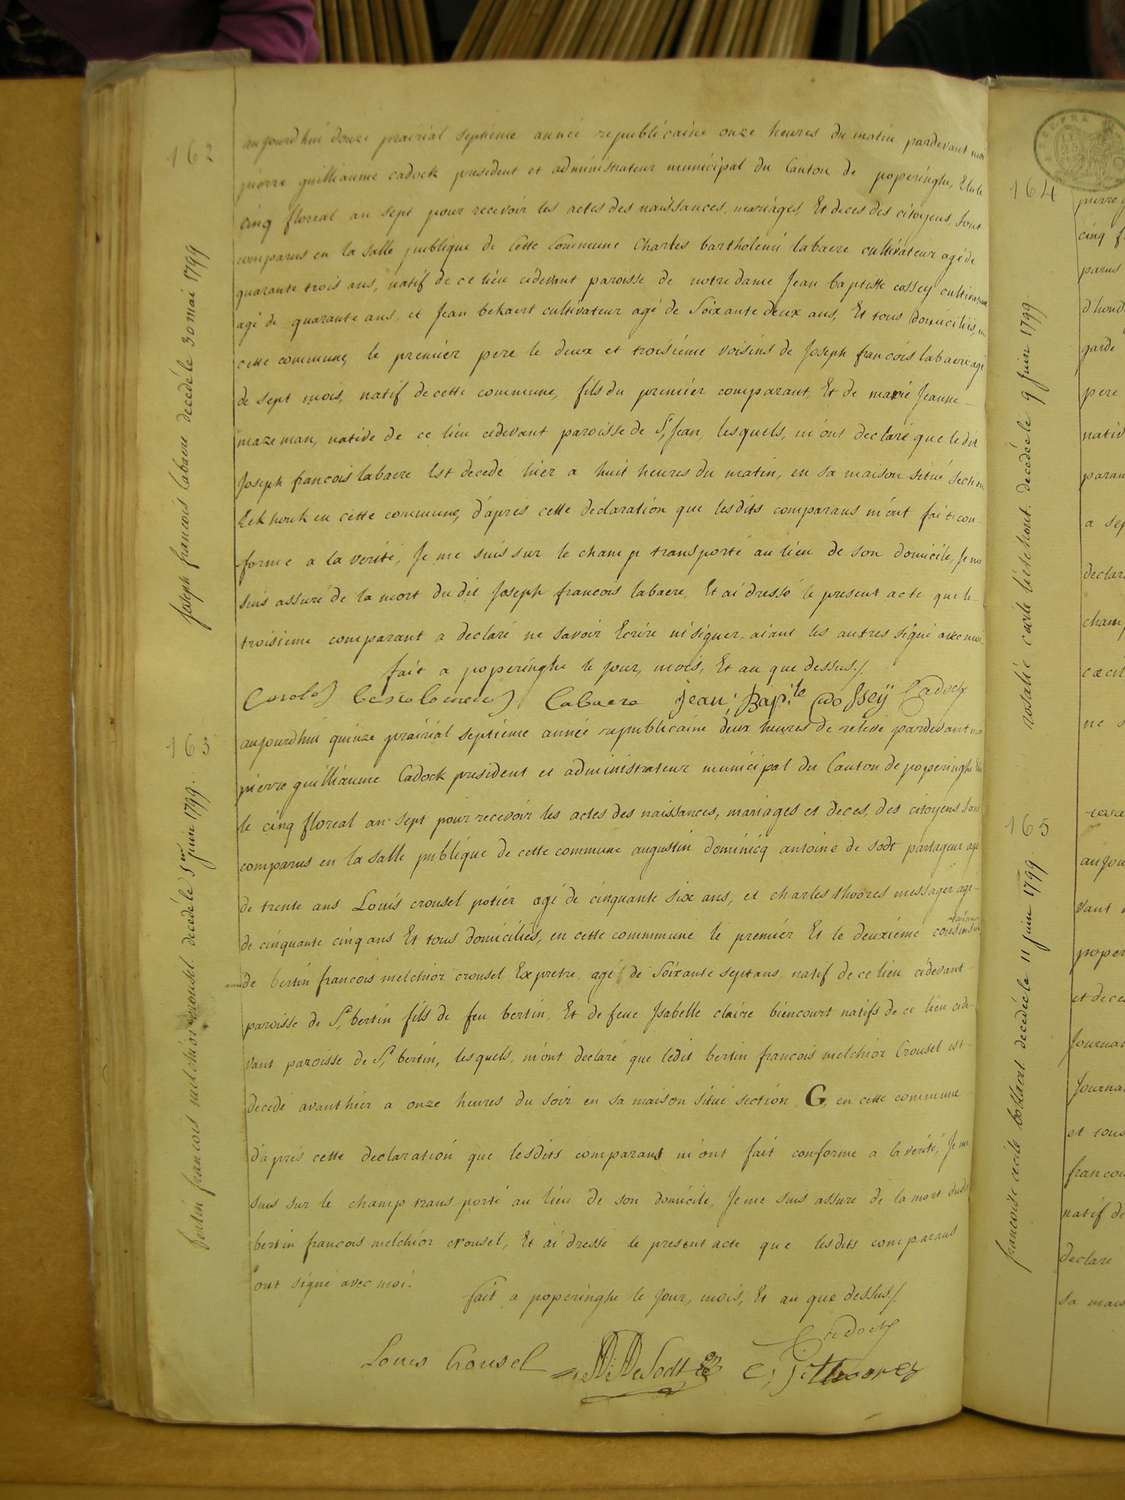 162
Joseph francois labaere decedé le 30 mai 1799
aujourd'hui douze prairial septieme année republicaine onze heures du matin pardevant moi
pierre guilliaume cadock president et administrateur municipal du Canton de poperinghe, Elu le
cinq floreal an sept pour recevoir les actes des naissances, mariages Et deces des citoyens, sont
comparus en la salle publique de cette Commune Charles bartholemi labaere cultivateur agé de
quarante trois ans, natif de ce lieu cidevant paroisse de notre dame Jean baptiste cossey cultivateur
agé de quarante ans et Jean bekaert cultivateur agé de Soixante deux ans, Et tous Domiciliés, en
cette commune, le premier pere le deux et troisiéme voisins de Joseph francois labaere agé
de sept mois, natif de cette commune, fils du premier comparant, Et de marie Jeanne
mazeman, native de ce lieu cidevant paroisse de St Jean, lesquels, m'ont declaré que ledit
Joseph francois labaere Est decedé hier a huit heures du matin, en sa maison situé section
Eekhouk en cette commune, d'apres cette declaration que lesdits comparans m'ont fait con-
forme a la verité, Je me suis sur le champ transporté au lieu de son domicile, Je me
suis assuré de la mort du dit Joseph francois labaere, Et ai dressé le present acte que le
troisieme comparant a declaré ne savoir Ecrire ni signer, aiant les autres signé avec moi
fait a poperinghe le Jour, mois, Et an que dessus./
labaere Jean; Bap.te Cossey Cadock
163
bertin francois melchior crousel decedé le 3me juin 1799
aujourdhui quinze prairial septieme année republicaine deux heures de relevé pardevant moi
pierre guilliaume Cadock president et administrateur municipal du Canton de poperinghe Elu
le cinq floreal an sept pour recevoir les actes des naissances, mariages et deces, des citoyens sont
comparus en la salle publique de cette commune augustin dominicq antoine de Sodt partageur agé
de trente ans Louis crousel potier agé de cinquante six ans, et charles thoores messager agé
de cinquante cinq ans Et tous domiciliés, en cette commmune le premier Et le deuxiéme
de bertin francois melchior crousel Expretre agé de Soixante sept ans natif de ce lieu cidevant
paroisse de St bertin fils de feu bertin, Et de feue Isabelle claire biencourt natifs de ce lieu cide-
vant paroisse de St bertin, lesquels, m'ont declaré que ledit bertin francois melchior Crousel est
decedé avant hier a onze heures du soir en sa maison situé section G en cette commune
d'apres cette declaration que lesdits comparans m'ont fait conforme a la verité, Je me
suis sur le champ trans porté au lieu de son domicile, Je me suis assuré de la mort dudit
bertin francois melchior crousel, Et ai dressé le present acte que lesdits comparans
ont signé avec moi.
fait a poperinghe le Jour, mois, Et an que dessus./
Cadock
Louis Crousel
164
decedée le 9 juin 1799
pierre
cinq f
parus
d'hond
garde
pere
nativ
paran
a sep
declar
champ
ne s
165
francoise decedée le 11 juin 1799
aujou
vant
poper
et dece
Journa
Journa
et tous
francois
natif de
declaré
sa mais